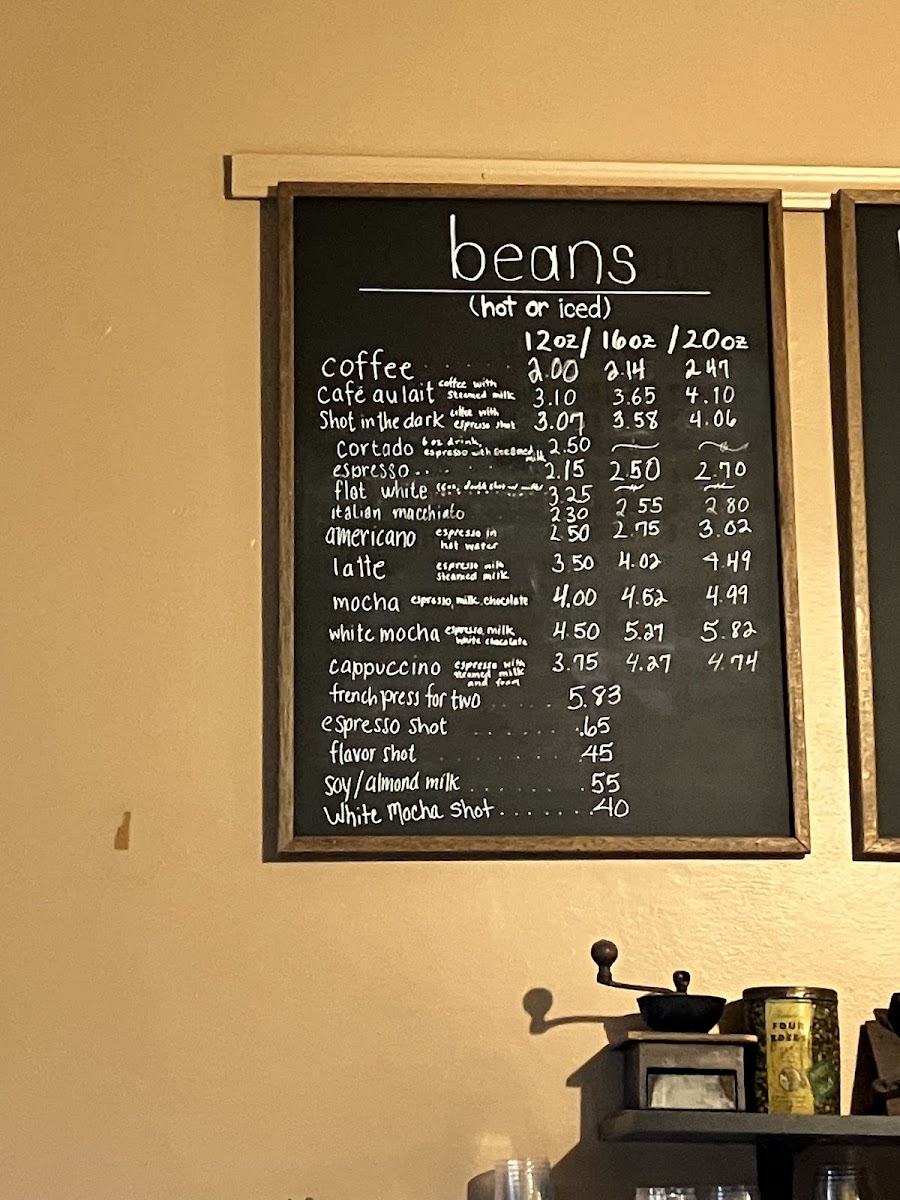 beans
(hot or iced)
12oz / 16oz / 20oz
coffee ...... 2.00 2.14 2.47
Café au lait coffee with steamed milk 3.10 3.65 4.10
Shot in the dark coffee with espresso shot 3.07 3.58 4.06
cortado 6 oz drink, espresso with steamed milk 2.50 ~ ~
espresso .. 2.15 2.50 2.70
flat white 3.25 ~ ~
italian macchiato 2 30 2 55 2 80
americano espresso in hot water 2 50 2.75 3.02
latte espresso with steamed milk 3 50 4.02 4.49
mocha espresso, milk, chocolate 4.00 4.52 4.99
white mocha espresso, milk white chocolate 4.50 5.27 5.82
cappuccino espresso with steamed milk and foam 3.75 4.27 4.74
french press for two ...... 5.83
espresso shot ....... .65
flavor shot ....... .45
soy/almond milk ....... .55
White Mocha shot ....... .40
FOUR
ROSES